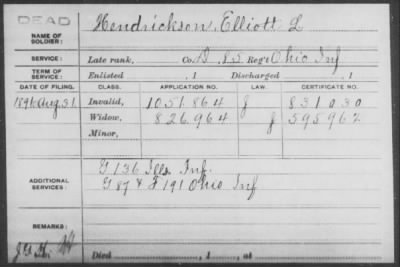 DEAD
NAME OF SOLDIER: Hendrickson, Elliott L
SERVICE: Late rank, Co. D, 85 Reg't Ohio Inf
TERM OF SERVICE: Enlisted , 1 Discharged , 1
DATE OF FILING. CLASS. APPLICATION NO. LAW. CERTIFICATE NO.
1891 Aug. 31. Invalid, 1051.864 J 831030
Widow, 826.964 J 595962
Minor,
ADDITIONAL SERVICES: G 136 Ills Inf.
G 87 & F 191 Ohio Inf
REMARKS:
Died , 1 , at